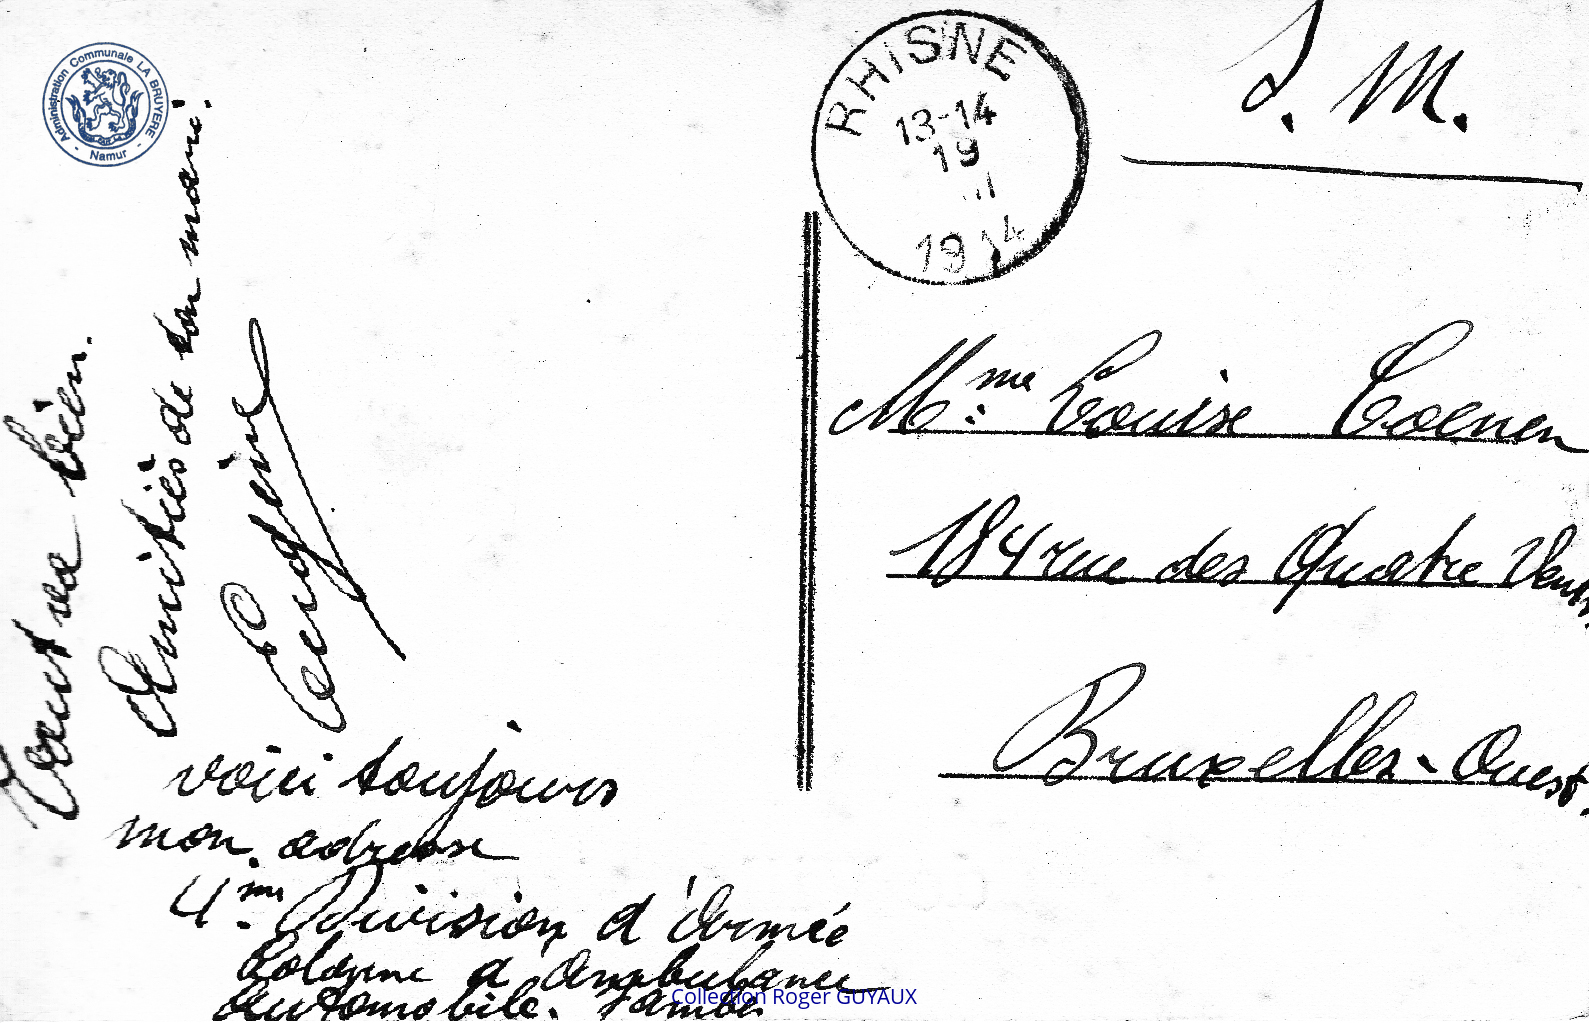 Administration Communale LA BRUYERE
- Namur -
RHISNE
13-14
19
1914
S. M.
Mme Louise Coenen
184 rue des Quatre Vents.
Bruxelles-Ouest.
Tout va bien.
Amitiés de ton mari.
Eugène
voici toujours
mon adresse
4me Division d'Armée
Colonne d'Ambulance
Automobile. Jambes
Collection Roger GUYAUX